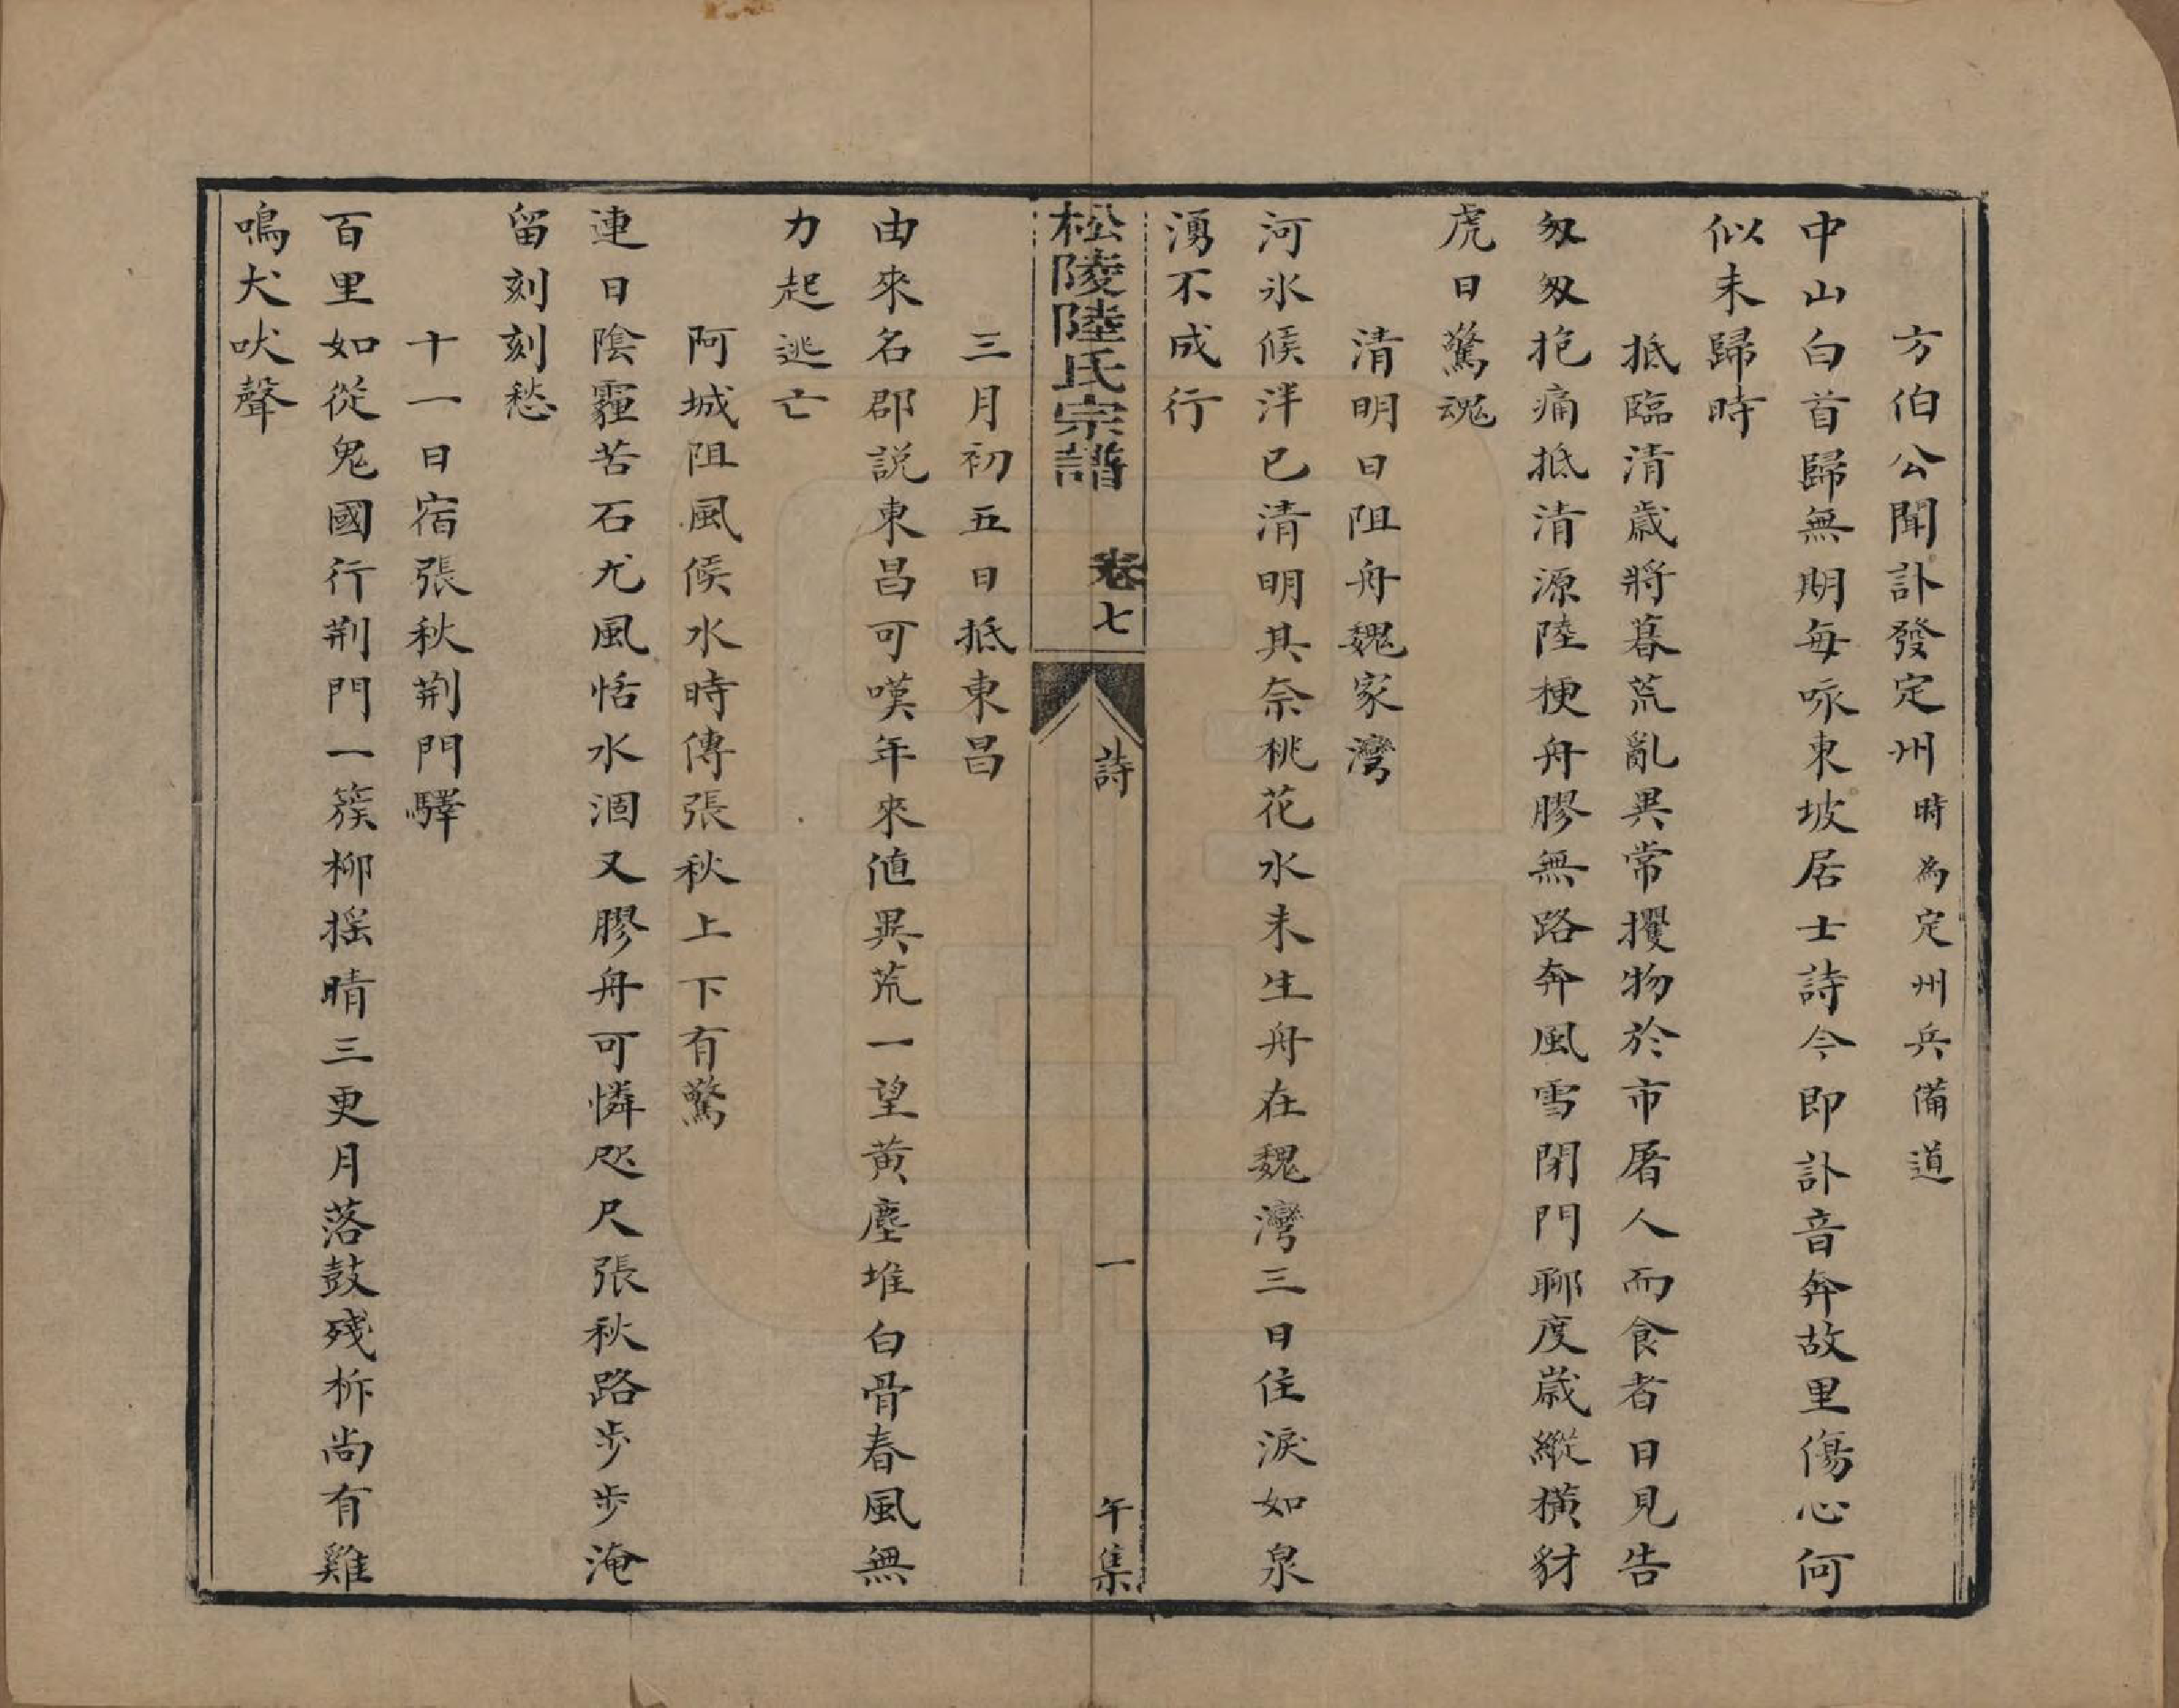 方伯公聞訃發定州時為定州兵備道
中山白首歸無期每咏東坡居士詩今即訃音奔故里傷心何
似未歸時
抵臨清歲將暮荒亂異常攫物於市屠人而食者日見告
匆匆抱痛抵清源陸梗舟膠無路奔風雪閉門聊度歲縱橫豺
虎日驚魂
清明日阻舟魏家灣
河氷候泮已清明其奈桃花水未生舟在魏灣三日住淚如泉
湧不成行
松陵陸氏宗譜 卷七 詩 一 午集
三月初五日抵東昌
由來名郡説東昌可嘆年來値異荒一望黃塵堆白骨春風無
力起逃亡
阿城阻風候水時傳張秋上下有驚
連日陰霾苦石尤風恬水涸又膠舟可憐咫尺張秋路步步淹
留刻刻愁
十一日宿張秋荆門驛
百里如從鬼國行荆門一簇柳搖晴三更月落鼓殘柝尚有雞
鳴犬吠聲